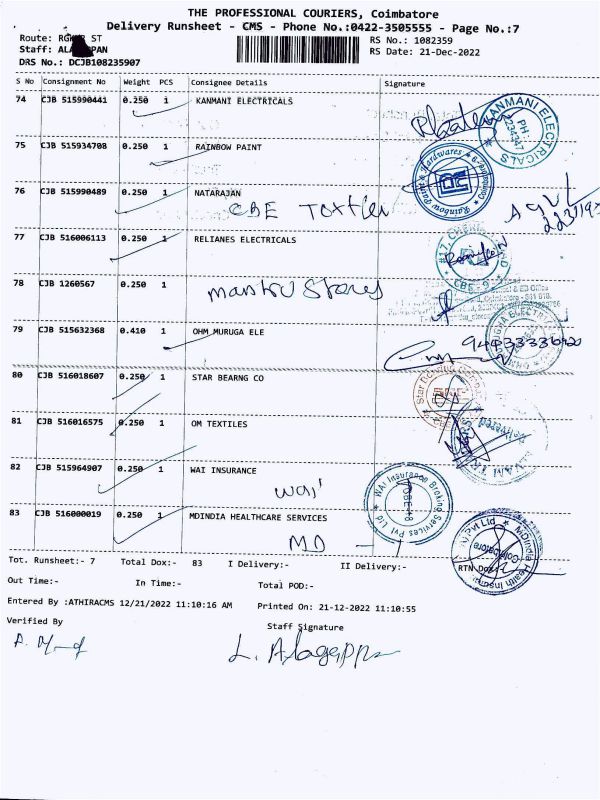 THE PROFESSIONAL COURIERS, Coimbatore
Delivery Runsheet - CMS - Phone No.:0422-3505555 - Page No.:7
Route: ST RS No.: 1082359
Staff: RS Date: 21-Dec-2022
DRS No.: DCJB108235907
S No Consignment No Weight PCS Consignee Details Signature
74 CJB 515990441 0.250 1 KANMANI ELECTRICALS
KANMANI ELECTRICALS PH 2234347
75 CJB 515934708 0.250 1 RAINBOW PAINT
Rainbow Paint Hardwares Coimbatore-9
76 CJB 515990489 0.250 1 NATARAJAN
CBE
77 CJB 516006113 0.250 1 RELIANES ELECTRICALS
CBE-9
78 CJB 1260567 0.250 1
Stores
79 CJB 515632368 0.410 1 OHM MURUGA ELE
80 CJB 516018607 0.250 1 STAR BEARNG CO
81 CJB 516016575 0.250 1 OM TEXTILES
82 CJB 515964907 0.250 1 WAI INSURANCE
wai
WAI Insurance Broking Services Pvt Ltd
83 CJB 516000019 0.250 1 MDINDIA HEALTHCARE SERVICES
MD
MDIndia Health Insurance Pvt Ltd Coimbatore
Tot. Runsheet:- 7 Total Dox:- 83 I Delivery:- II Delivery:- RTN Dox:-
Out Time:- In Time:- Total POD:-
Entered By :ATHIRACMS 12/21/2022 11:10:16 AM Printed On: 21-12-2022 11:10:55
Verified By Staff Signature
L. Alagappan